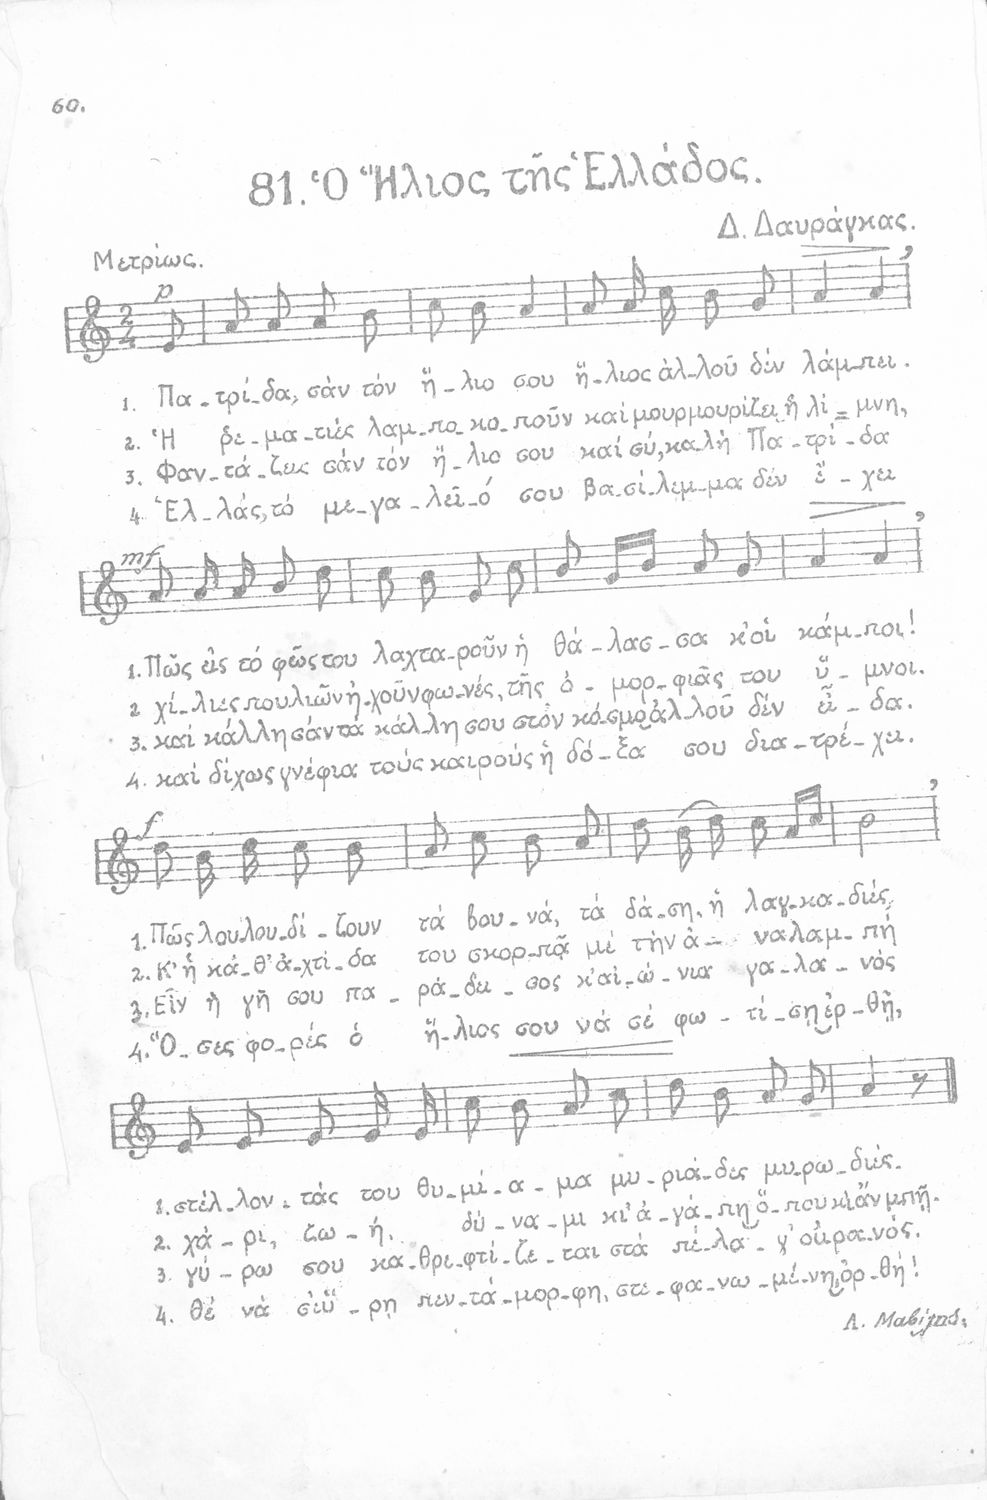 60.
81. Ὁ Ἥλιος τῆς Ἑλλάδος.
Δ. Δαυράγκας.
Μετρίως.
p
1. Πα-τρί-δα, σάν τόν ἥ-λιο σου ἥ-λιος ἀλ-λοῦ δέν λάμ-πει.
2. Ἡ ρε-μα-τιές λαμ-πο-κο-ποῦν καί μουρμουρίζει ἡ λί-μνη,
3. Φαν-τά-ζεις σάν τόν ἥ-λιο σου καί σύ, κα-λή Πα-τρί-δα
4. Ἑλ-λάς, τό με-γα-λεῖ-ό σου βα-σί-λεμ-μα δέν ἔ-χει
mf
1. Πῶς εἰς τό φῶς του λαχτα-ροῦν ἡ θά-λασ-σα κ' οἱ κάμ-ποι!
2 χί-λιες πουλιῶν ἠ-χοῦν φω-νές, τῆς ὀ-μορ-φιᾶς του ὕ-μνοι.
3. καί κάλλη σάν τά κάλλη σου στόν κόσμο ἀλ-λοῦ δέν εἶ-δα.
4. καί δίχως γνέφια τούς καιρούς ἡ δό-ξα σου δια-τρέ-χει.
f
1. Πῶς λουλου-δί-ζουν τά βου-νά, τά δά-ση, ἡ λαγ-κα-διές,
2. Κ' ἡ κά-θ' ἀ-χτί-δα του σκορ-πᾷ μέ τήν ἀ-ναλαμ-πή
3. Εἶν ἡ γῆ σου πα-ρά-δει-σος κ' αἰ-ώ-νια γα-λα-νός
4. Ὅ-σες φο-ρές ὁ ἥ-λιος σου νά σέ φω-τί-σῃ ἐρ-θῇ,
1. στέλ-λον-τάς του θυ-μί-α-μα μυ-ριά-δες μυ-ρω-διές.
2. χά-ρι, ζω-ή, δύ-να-μι κι' ἀ-γά-πη ὅ-που κι ἂν μπῇ.
3. γύ-ρω σου κα-θρε-φτί-ζε-ται στά πέ-λα-γ' οὐ-ρα-νός.
4. θέ νά σ' εὕ-ρῃ πεν-τά-μορ-φη, στε-φα-νω-μέ-νη, ὀρ-θή!
Λ. Μαβίλης.